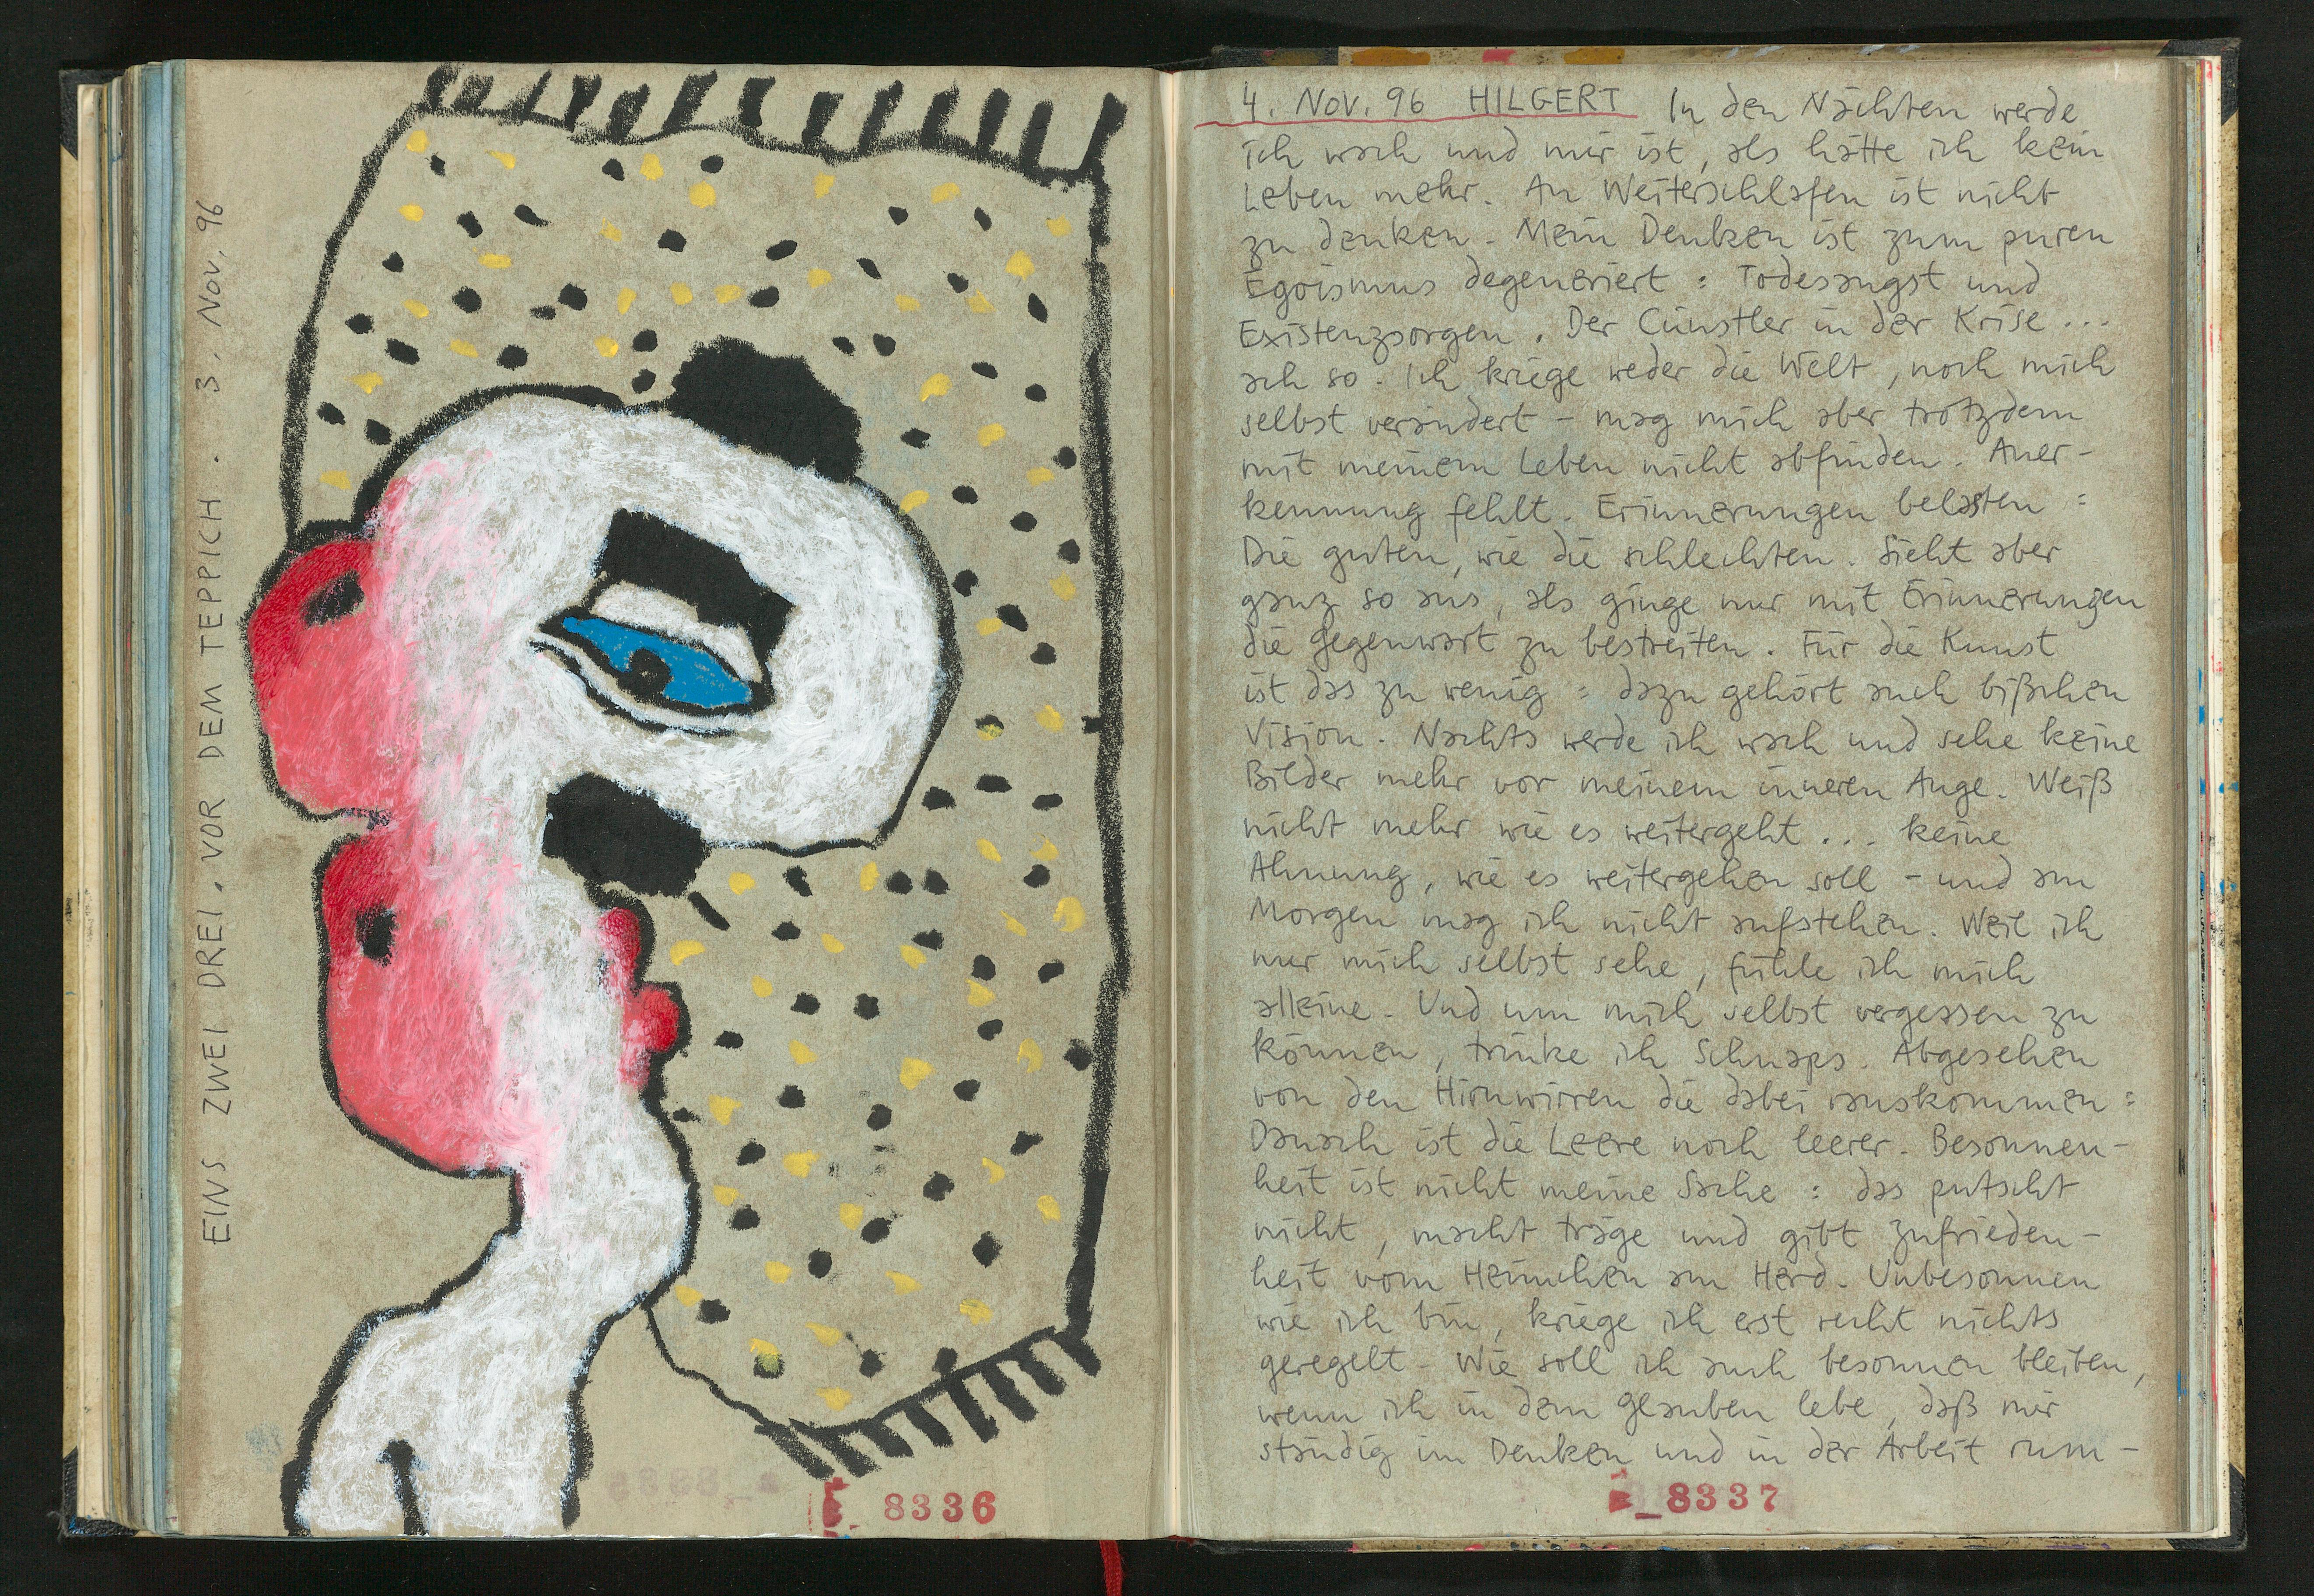 EINS ZWEI DREI. VOR DEM TEPPICH. 3. Nov. 96
8336
4. Nov. 96 HILGERT In den Nächten werde
ich wach und mir ist, als hätte ich kein
Leben mehr. An Weiterschlafen ist nicht
zu denken. Mein Denken ist zum puren
Egoismus degeneriert: Todesangst und
Existenzsorgen. Der Cünstler in der Krise...
ach so. Ich kriege weder die Welt, noch mich
selbst verändert - mag mich aber trotzdem
mit meinem Leben nicht abfinden. Aner-
kennung fehlt. Erinnerungen belasten:
Die guten, wie die schlechten. Sieht aber
ganz so aus, als ginge nur mit Erinnerungen
die Gegenwart zu bestreiten. Für die Kunst
ist das zu wenig: dazu gehört auch bißchen
Vision. Nachts werde ich wach und sehe keine
Bilder mehr vor meinem inneren Auge. Weiß
nicht mehr wie es weitergeht... keine
Ahnung, wie es weitergehen soll - und am
Morgen mag ich nicht aufstehen. Weil ich
nur mich selbst sehe, fühle ich mich
alleine. Und um mich selbst vergessen zu
können, trinke ich Schnaps. Abgesehen
von den Hirnwirren die dabei rauskommen:
Danach ist die Leere noch leerer. Besonnen-
heit ist nicht meine Sache: das putscht
nicht, macht träge und gibt Zufrieden-
heit vom Heimchen am Herd. Unbesonnen
wie ich bin, kriege ich erst recht nichts
geregelt. Wie soll ich auch besonnen bleiben,
wenn ich in dem Glauben lebe, daß mir
ständig im Denken und in der Arbeit rum-
8337